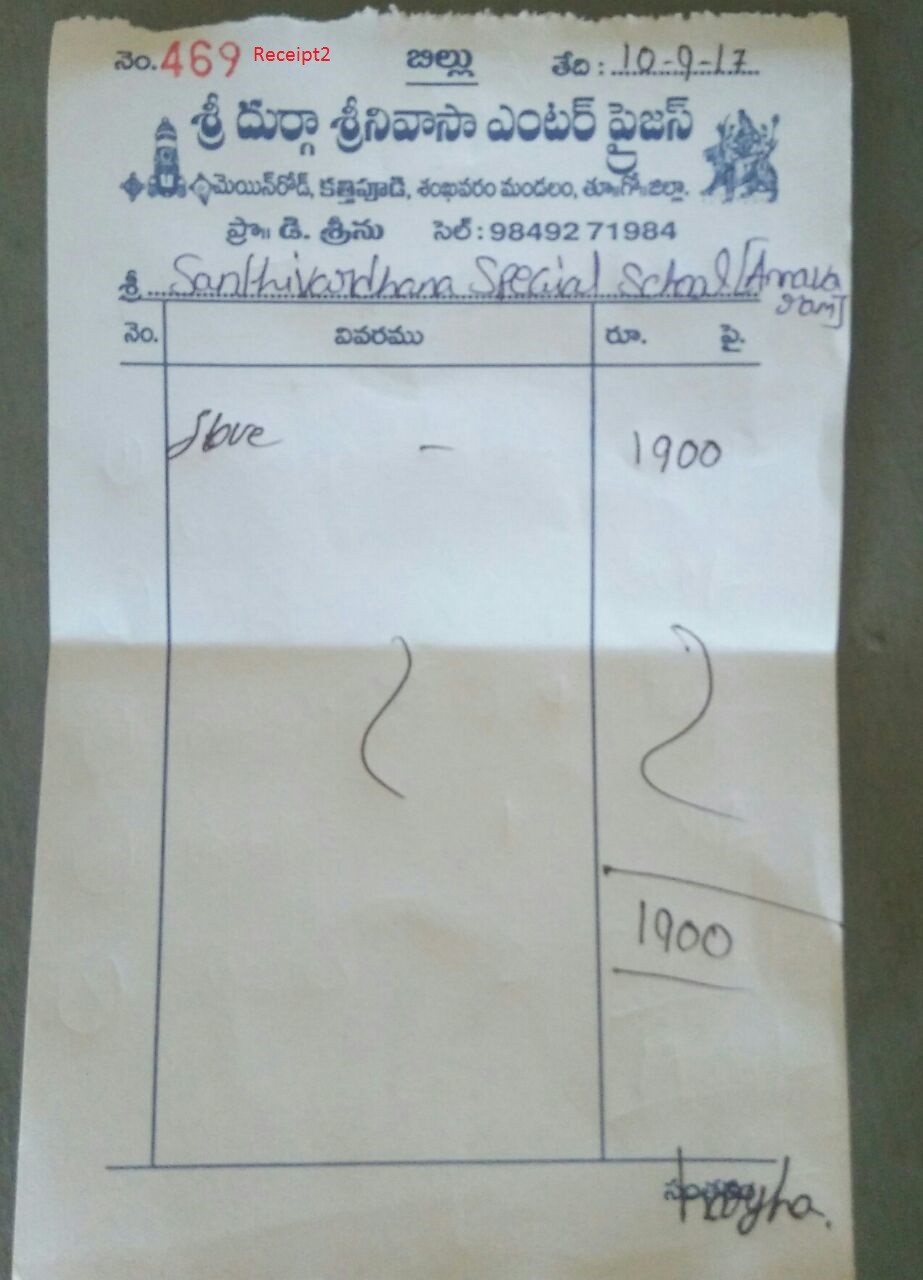 నెం. 469 Receipt2 బిల్లు తేది : 10-9-17
శ్రీ దుర్గా శ్రీనివాసా ఎంటర్ ప్రైజస్
మెయిన్‌రోడ్, కత్తిపూడి, శంఖవరం మండలం, తూ॥గో॥జిల్లా.
ప్రొ॥ డి. శ్రీను సెల్ : 98492 71984
శ్రీ Santhivardhana Special School [Annava
ram]
నెం. వివరము రూ. పై.
Stove - 1900
1900